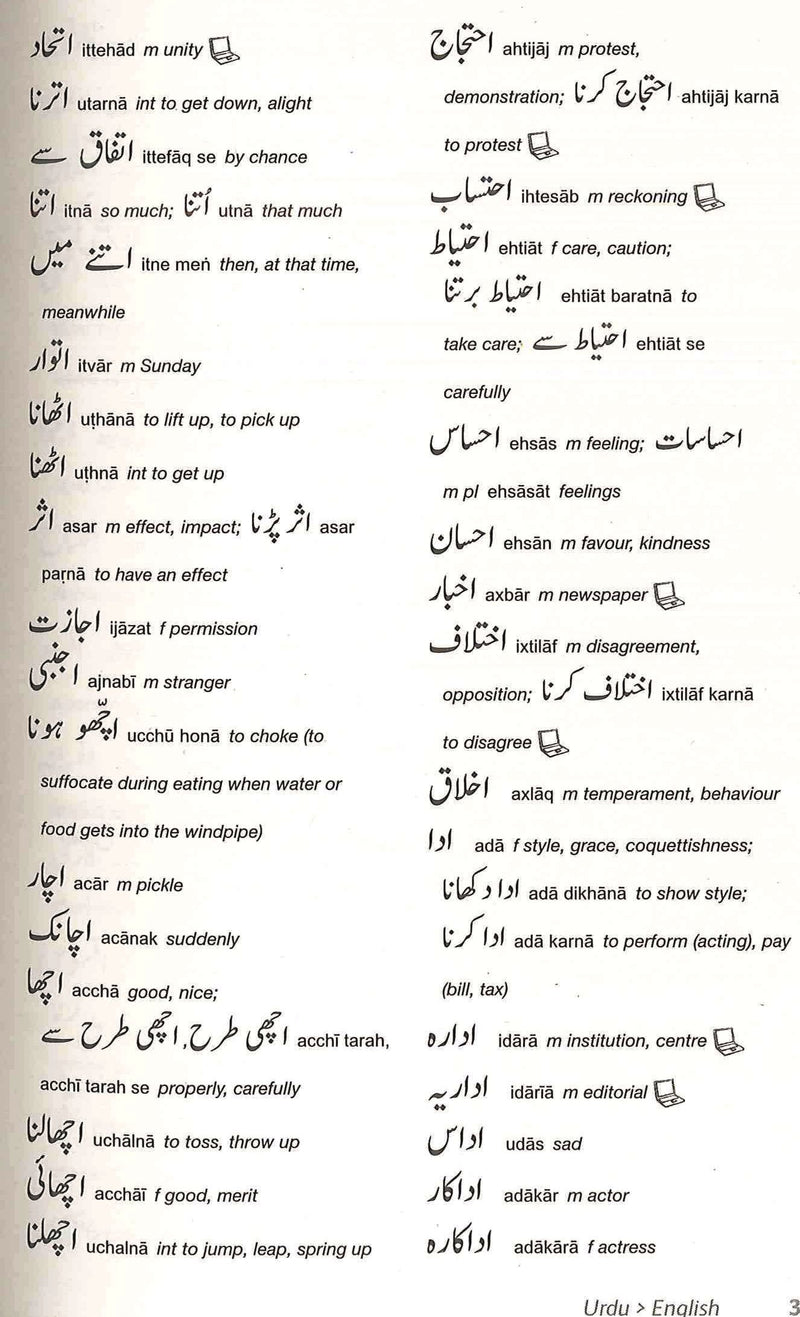 اتحاد ittehād m unity
اترنا utarnā int to get down, alight
اتفاق سے ittefāq se by chance
اتنا itnā so much; اُتنا utnā that much
اتنے میں itne meṅ then, at that time,
meanwhile
اتوار itvār m Sunday
اٹھانا uṭhānā to lift up, to pick up
اٹھنا uṭhnā int to get up
اثر asar m effect, impact; اثر پڑنا asar
paṛnā to have an effect
اجازت ijāzat f permission
اجنبی ajnabī m stranger
اچّھو ہونا ucchū honā to choke (to
suffocate during eating when water or
food gets into the windpipe)
اچار acār m pickle
اچانک acānak suddenly
اچھا acchā good, nice;
اچھی طرح, اچھی طرح سے acchī tarah,
acchī tarah se properly, carefully
اچھالنا uchālnā to toss, throw up
اچھائی acchāī f good, merit
اچھلنا uchalnā int to jump, leap, spring up
احتجاج ahtijāj m protest,
demonstration; احتجاج کرنا ahtijāj karnā
to protest
احتساب ihtesāb m reckoning
احتیاط ehtiāt f care, caution;
احتیاط برتنا ehtiāt baratnā to
take care; احتیاط سے ehtiāt se
carefully
احساس ehsās m feeling; احساسات
m pl ehsāsāt feelings
احسان ehsān m favour, kindness
اخبار axbār m newspaper
اختلاف ixtilāf m disagreement,
opposition; اختلاف کرنا ixtilāf karnā
to disagree
اخلاق axlāq m temperament, behaviour
ادا adā f style, grace, coquettishness;
ادا دکھانا adā dikhānā to show style;
ادا کرنا adā karnā to perform (acting), pay
(bill, tax)
ادارہ idārā m institution, centre
اداریہ idārīā m editorial
اداس udās sad
اداکار adākār m actor
اداکارہ adākārā f actress
Urdu > English 3